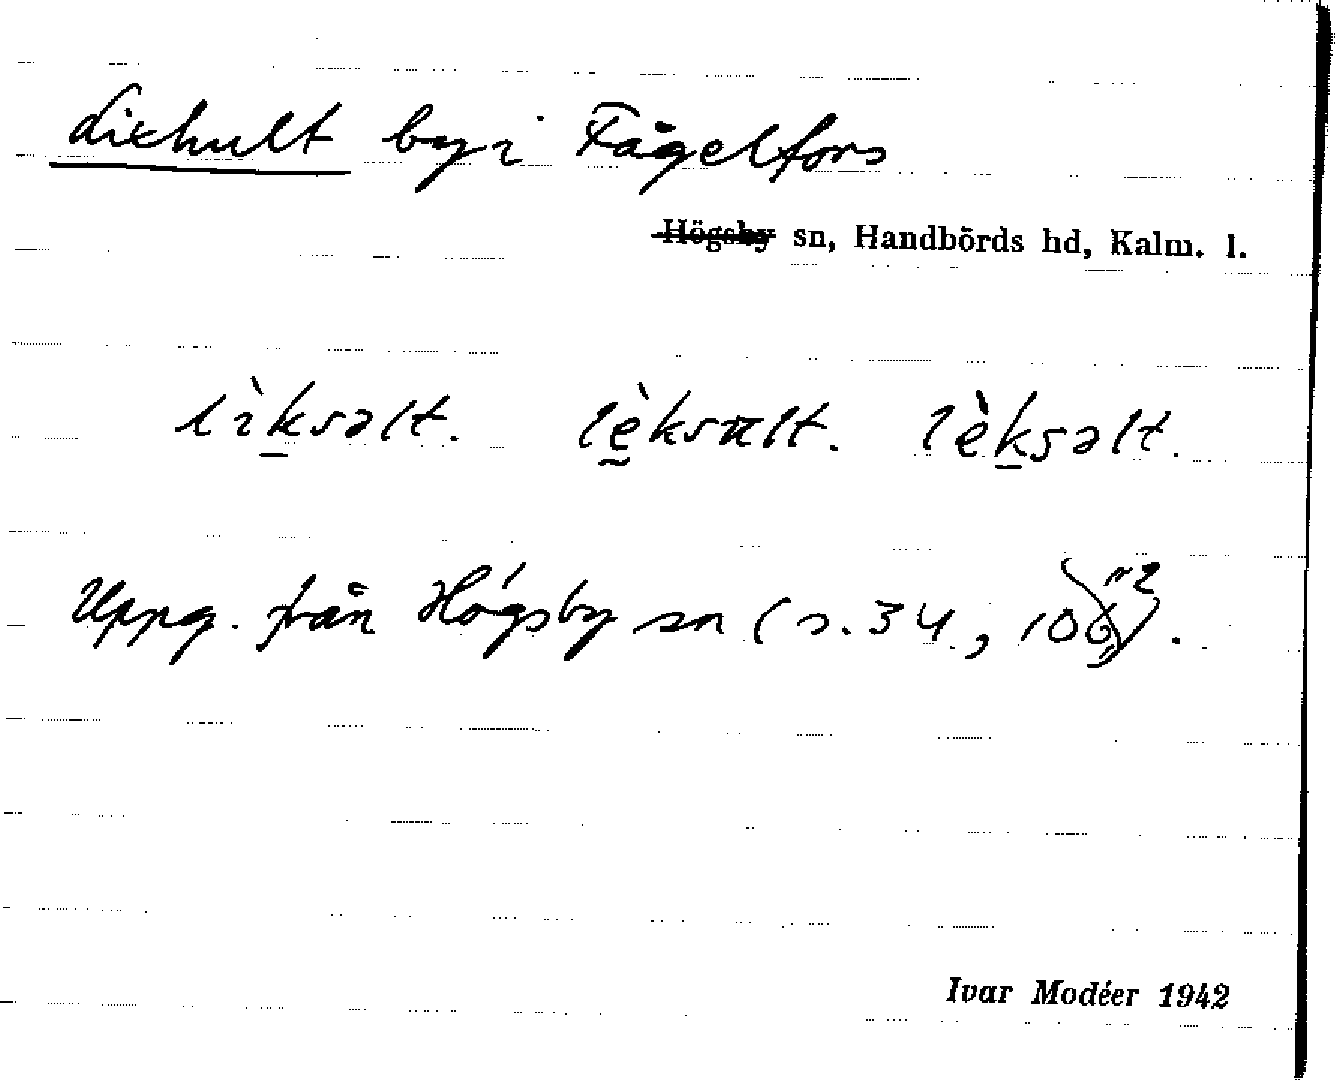 Lixhult by i Fågelfors
Högsby sn, Handbörds hd, Kalm. l.
lìksəlt. lèksælt. lèksəlt.
Uppg. från Högsby sn (s. 34,
Ivar Modéer 1942